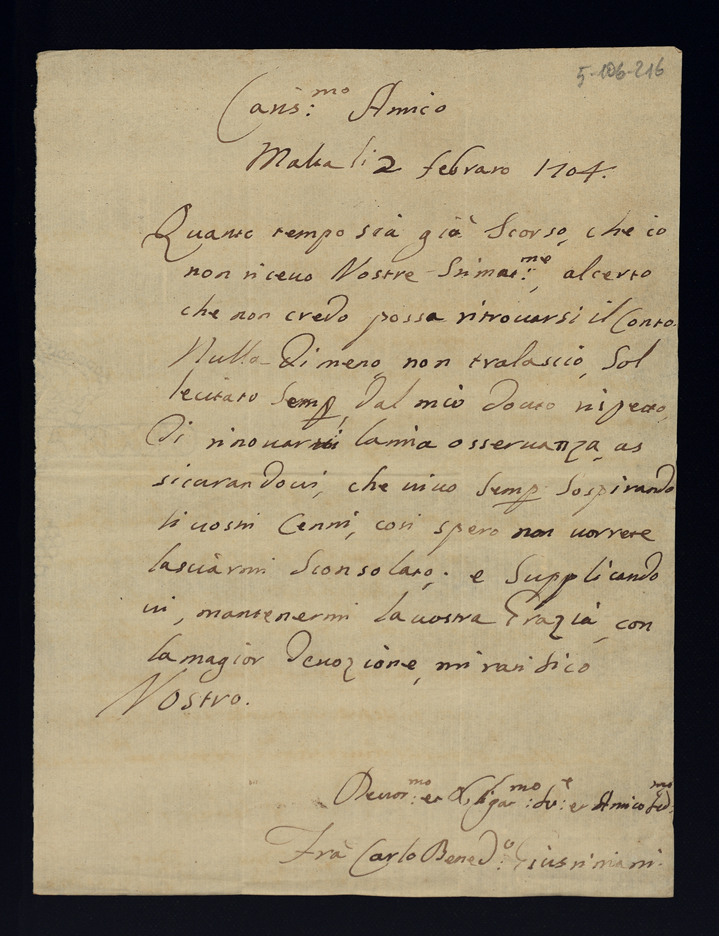 5-106-216
Caris:mo Amico
Malta li 2 febraro 1704.
Quanto tempo sià già Scorso, che io
non riceuo Vostre Stimat:me, alcerto
che non credo possa ritrouarsi il Conto.
Nulla Di meno, non tralascio, Sol
lecitato Semp, Dal mio douto rispetto,
Di rinouarui la mia osseruanza, as
sicurandoui, che uiuo Semp Sospirando
li uostri Cenni, cosi spero non uorrete
lasciàrmi Sconsolato; e Supplicando
ui, mantenermi la uostra Grazia, con
la magior Deuozione, mi ratifico
Vostro.
Deuot:mo et Obligat:mo Sr:e et Amico
Frà Carlo Bened:o Giustiniani